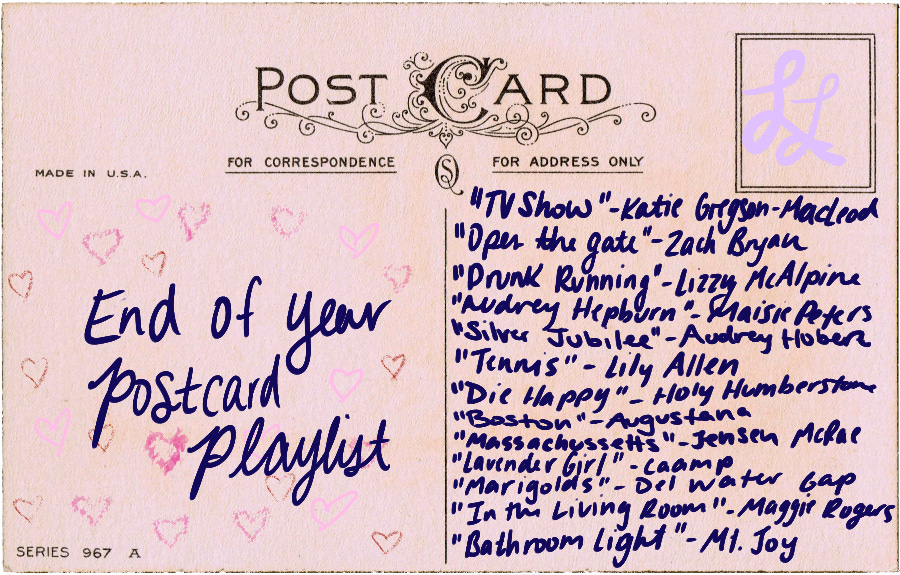 POST CARD
FOR CORRESPONDENCE
FOR ADDRESS ONLY
MADE IN U.S.A.
LL
End of year
Postcard
Playlist
"TV Show"-Katie Gregson-Macleod
"Open the gate"-Zach Bryan
"Drunk Running"-Lizzy McAlpine
"Audrey Hepburn"-Maisie Peters
"Silver Jubilee"-Audrey Hobert
"Tennis" - Lily Allen
"Die Happy" - Holy Humberstone
"Boston"-Augustana
"Massachussetts"-Jensen McRae
"Lavender Girl" - Caamp
"Marigolds"- Del Water Gap
"In the Living Room"- Maggie Rogers
"Bathroom Light"- Mt. Joy
SERIES 967 A